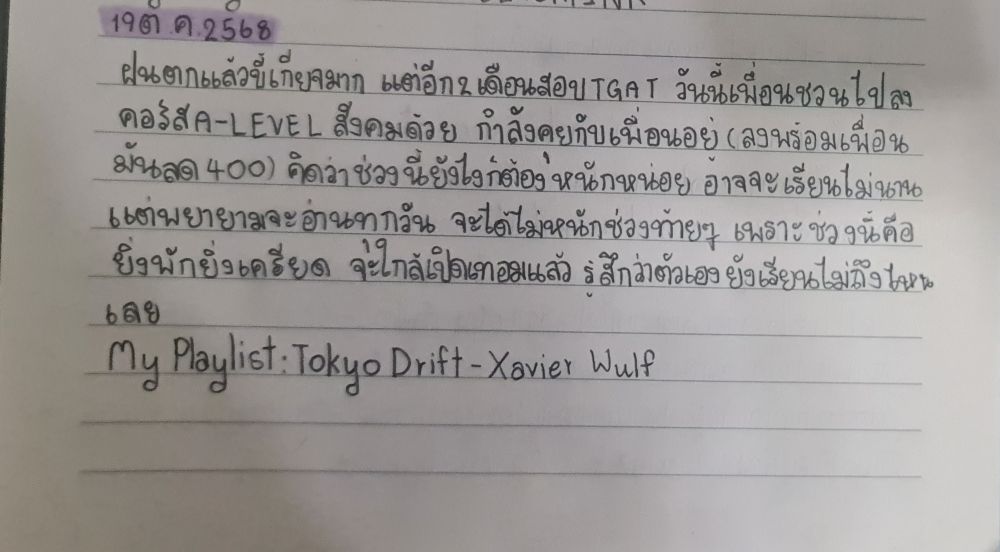 19 ต.ค.2568
ฝนตกแล้วขี้เกียจมาก แต่อีก2เดือนสอบTGAT วันนี้เพื่อนชวนไปลง
คอร์สA-LEVEL สังคมด้วย กำลังคุยกับเพื่อนอยู่ (ลงพร้อมเพื่อน
มันลด 400) คิดว่าช่วงนี้ยังไงก็ต้องหนักหน่อย อาจจะเรียนไม่นาน
แต่พยายามจะอ่านทุกวัน จะได้ไม่หนักช่วงท้ายๆ เพราะช่วงนี้คือ
ยิ่งพักยิ่งเครียด จะใกล้เปิดเทอมแล้ว รู้สึกว่าตัวเองยังเรียนไม่ถึงไหน
เลย
My Playlist: Tokyo Drift - Xavier Wulf